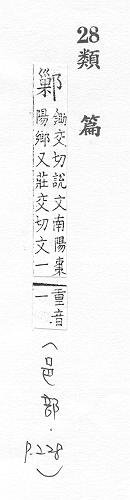 28類篇
鄛鋤交切說文南陽棗
陽鄉又莊交切文一
重音一
(邑部.P.228)